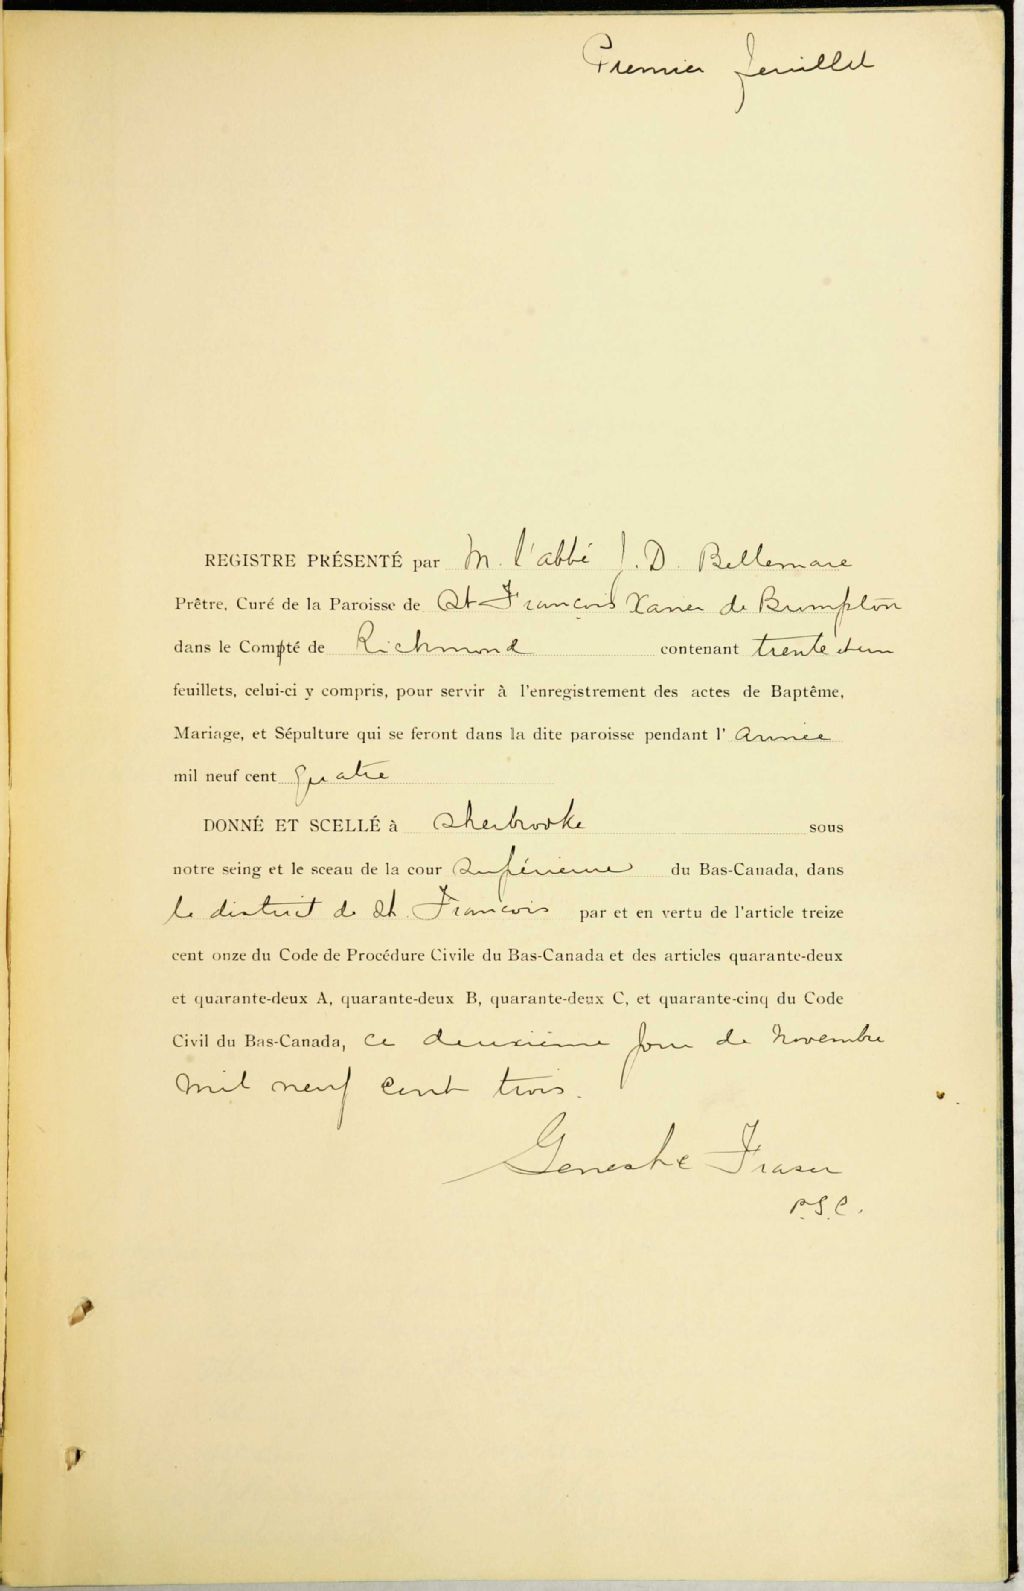 Premier feuillet
REGISTRE PRÉSENTÉ par M. l'abbé J. D. Bellemare
Prêtre, Curé de la Paroisse de St François Xavier de Brompton
dans le Compté de Richmond contenant trente et un
feuillets, celui-ci y compris, pour servir à l'enregistrement des actes de Baptême,
Mariage, et Sépulture qui se feront dans la dite paroisse pendant l' année
mil neuf cent quatre
DONNÉ ET SCELLÉ à Sherbrooke sous
notre seing et le sceau de la cour Supérieure du Bas-Canada, dans
le district de St. François par et en vertu de l'article treize
cent onze du Code de Procédure Civile du Bas-Canada et des articles quarante-deux
et quarante-deux A, quarante-deux B, quarante-deux C, et quarante-cinq du Code
Civil du Bas-Canada, ce deuxième jour de Novembre
mil neuf cent trois.
Genestre Fraser
P.S.C.